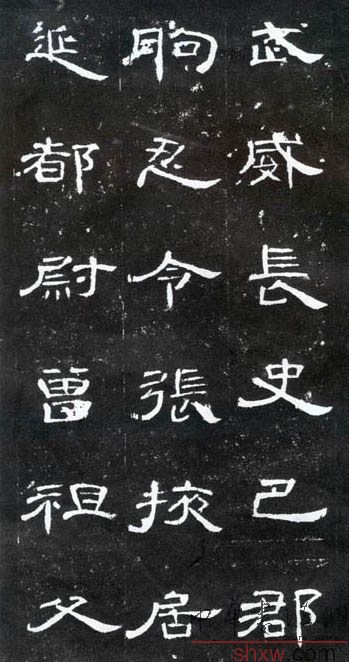 武威長史巴郡
朐忍令張掖居
延都尉曾祖父
shxw.com